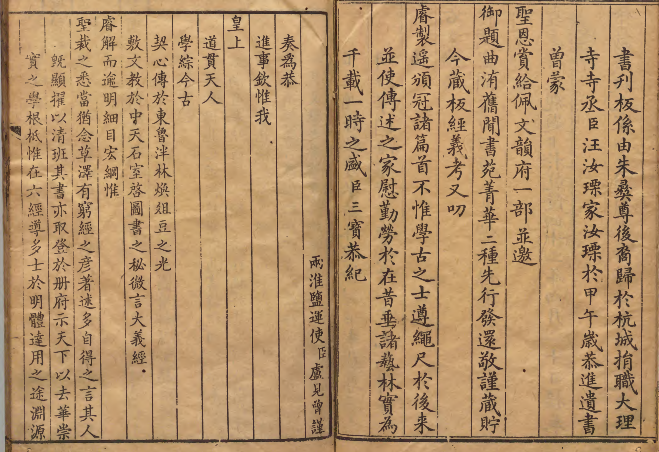 書刊板係由朱彝尊後裔歸於杭城捐職大理
寺寺丞臣汪汝瑮家汝瑮於甲午歲恭進遺書
曽蒙
聖恩賞給佩文韻府一部並邀
御題曲洧舊聞書苑菁華二種先行發還敬謹藏貯
今藏板經義考又叨
睿製遥頒冠諸篇首不惟學古之士遵繩尺於後來
並使傳述之家慰勤勞於在昔垂諸藝林實為
千載一時之盛臣三寳恭紀
兩淮鹽運使臣盧見曽謹
奏為恭
進事欽惟我
皇上
道貫天人
學綜今古
契心傳於東魯泮林煥俎豆之光
敷文教於中天石室啓圖書之秘微言大義經
睿解而逾明細目宏綱惟
聖裁之悉當猶念草澤有窮經之彦著述多自得之言其人
既顯擢以清班其書亦取登於册府示天下以去華崇
實之學根柢惟在六經導多士於明體達用之途淵源